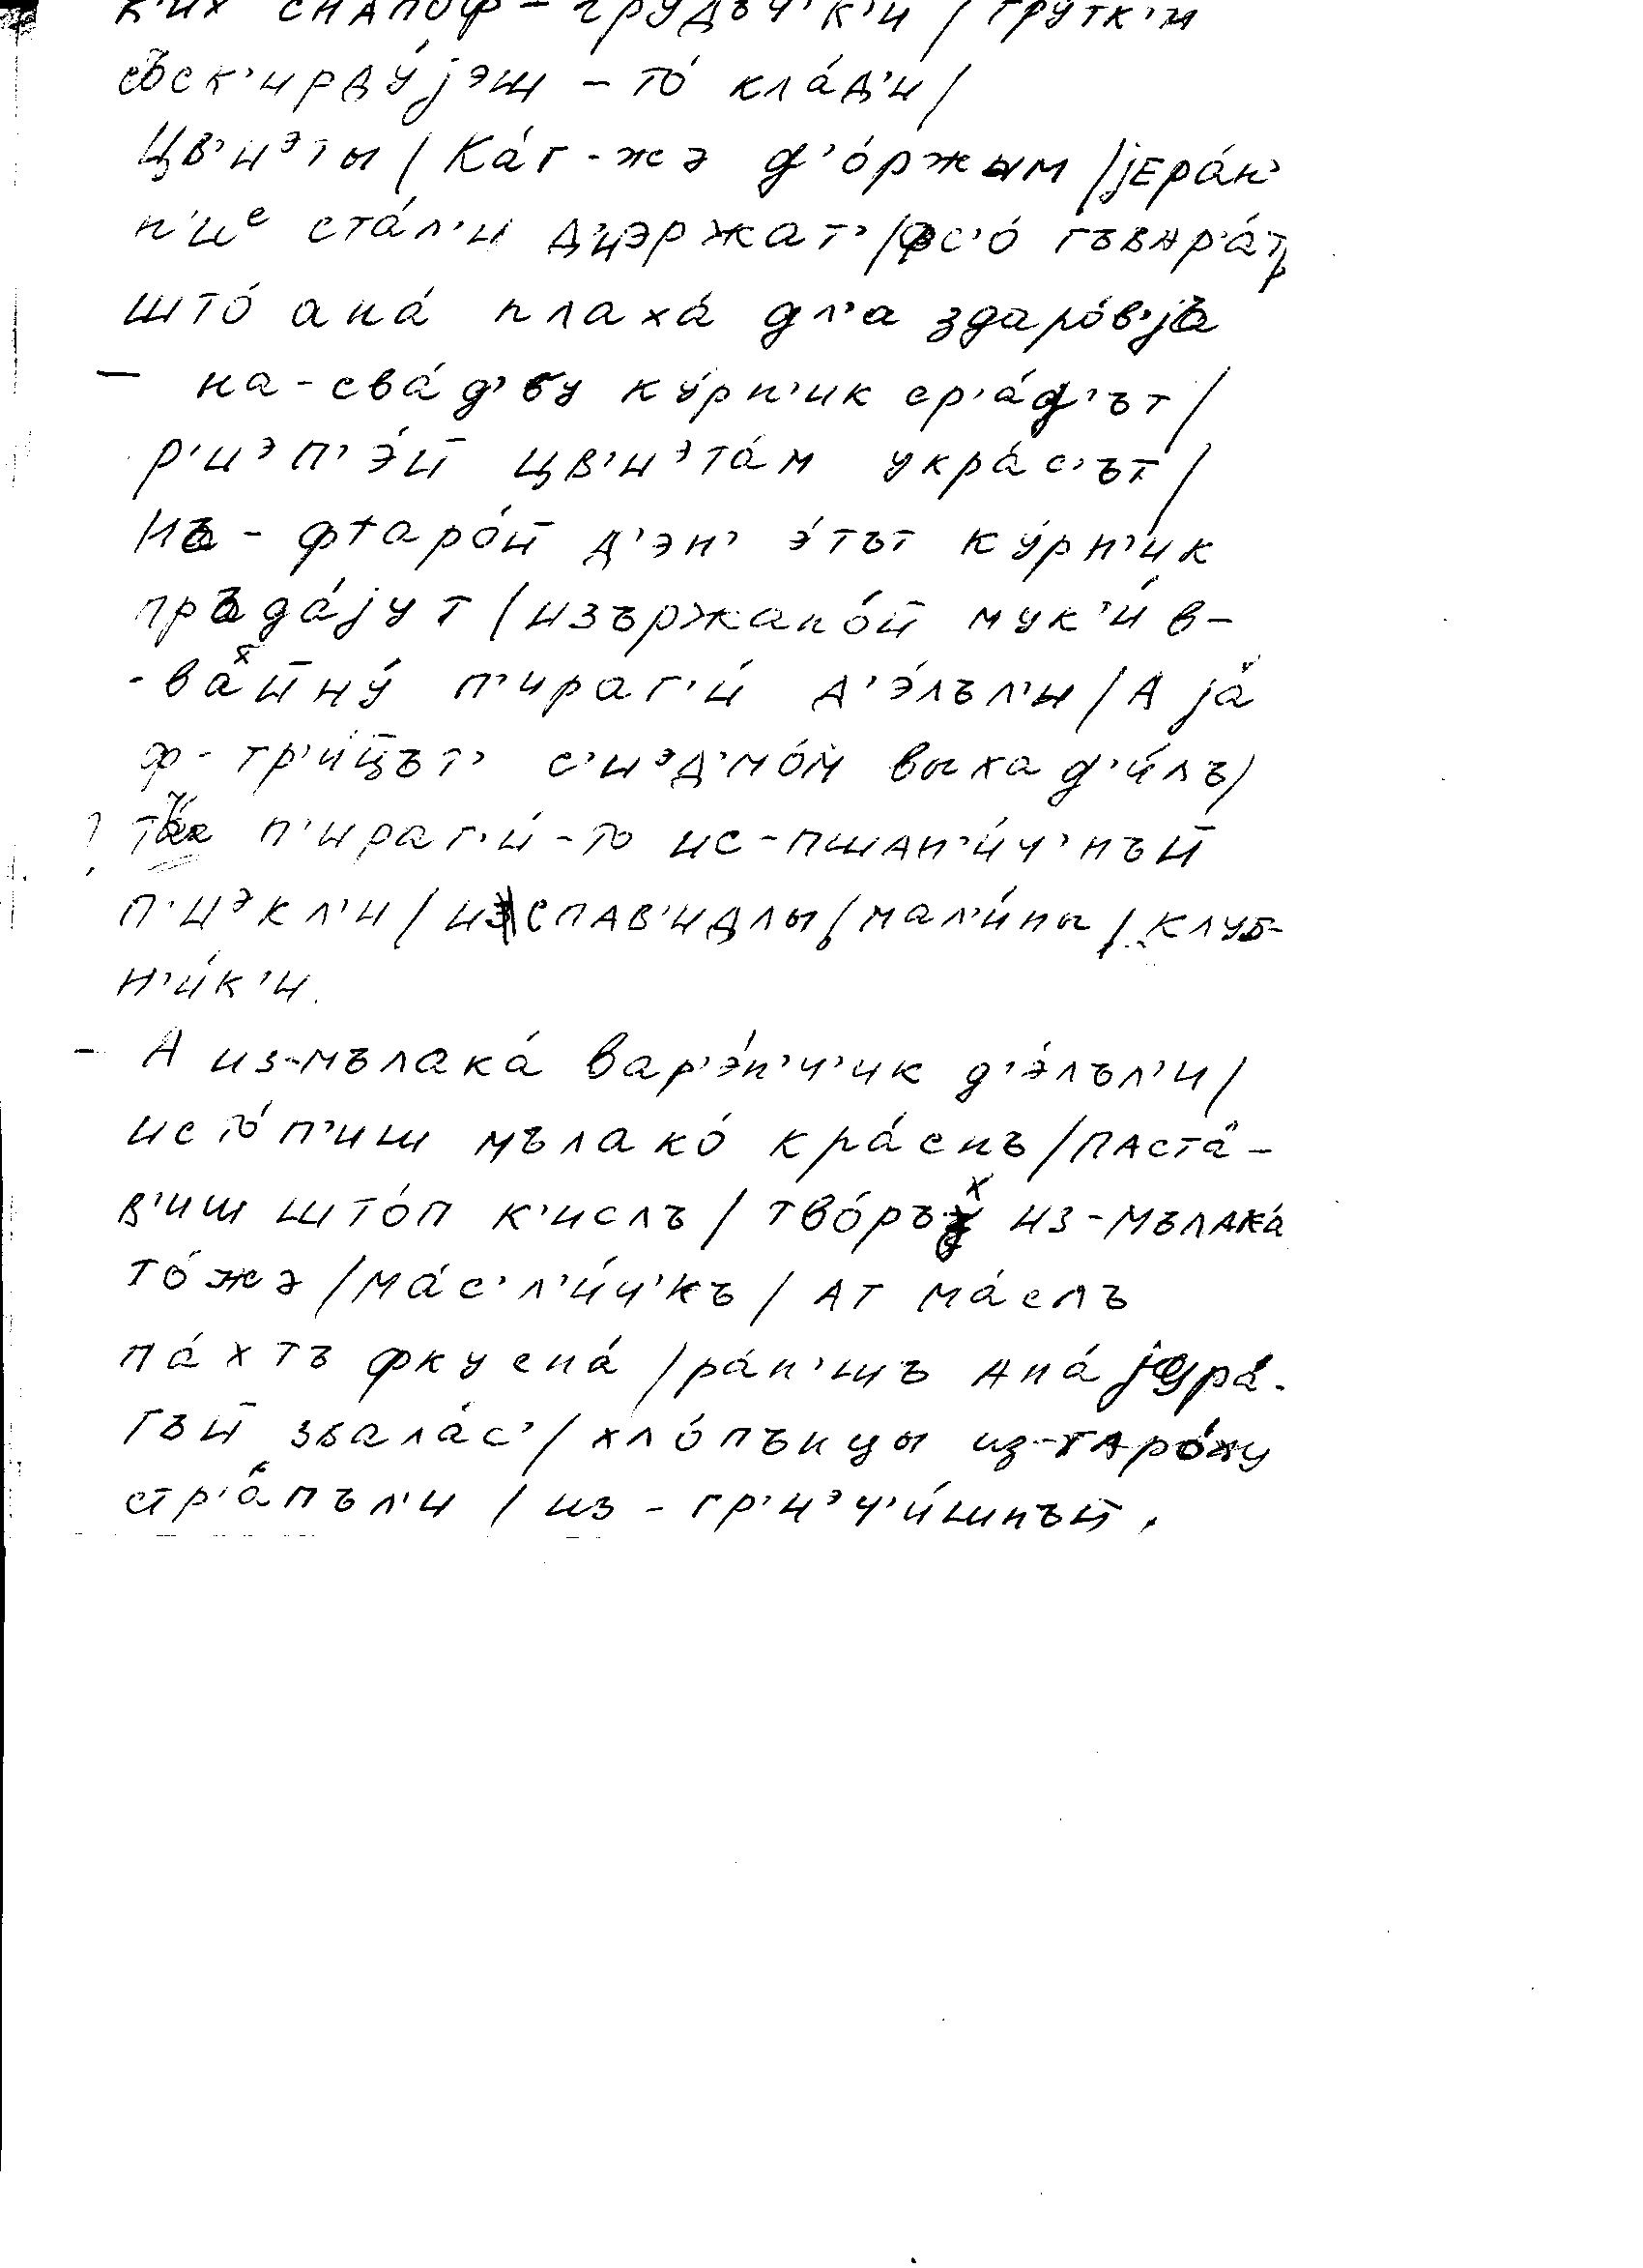 к'их снапоф - грудъч'к'и / грутк'и
съск'ирду́jэш - то́ кла́д'и /
Цв'иэты / Ка́г-жэ д'о́ржым / jера́н'
н'ие ста́л'и д'иэржат' / фс'о́ гъвар'а́т,
што́ ана́ плаха́ дл'а здаро́в'jъ
– на-сва́д'бу ку́рн'ик ср'а́д'ът /
р'иэп'э́й цв'иэта́м укра́с'ът /
Нъ-фтаро́й д'эн' э́тът ку́рн'ик
пръда́jут / изържано́й мук'и́ в-
-вайну́ п'ираг'и́ д'э́лъл'и / А jа́
ф-тр'и́цът' с'иэд'мо́й выхад'и́лъ /
п'ираг'и́-то ис-пшан'и́ч'нъй
п'иэкл'и / испав'идлы, мал'и́ны, клуб-
н'и́к'и.
– А из-мълака́ вар'э́н'ч'ик д'э́лъл'и /
исто́п'иш мълако́ кра́снъ / паста́-
в'иш што́п к'ислъ / тво́ръх из-мълака́
то́жэ / ма́с'л'и́ч'къ / ат ма́слъ
па́хтъ фкусна́ / ра́н'шъ ана́ jура́-
гъй звала́с' / хло́пънцы из-гаро́ху
стр'а́пъл'и / из-гр'иэч'и́шнъй.